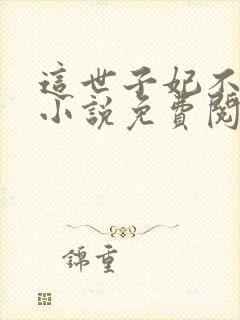 這世子妃不
小說免費閱
錦重